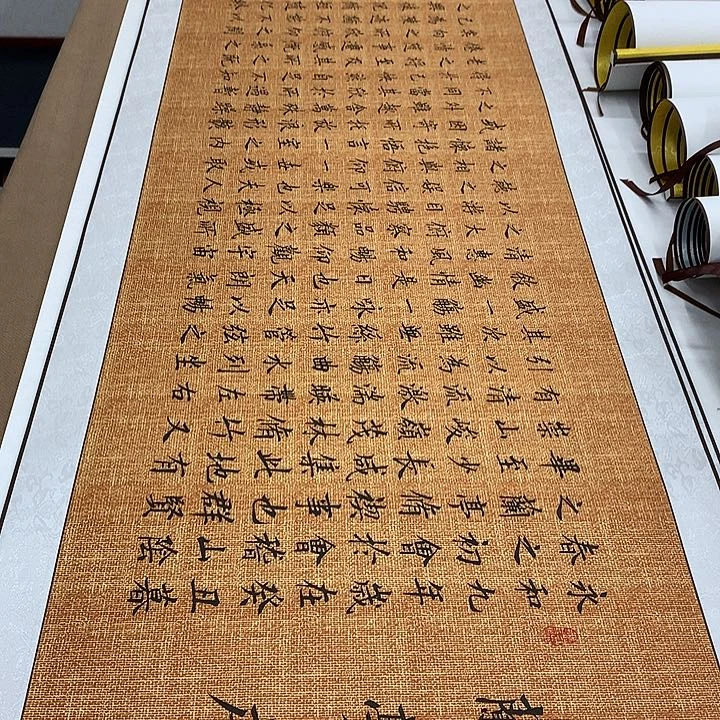 永和九年歲在癸丑暮
春之初會於會稽山陰
之蘭亭脩禊事也群賢
畢至少長咸集此地有
崇山峻嶺茂林脩竹又
有清流激湍映帶左右
引以為流觴曲水列坐
其次雖無絲竹管弦之
盛一觴一詠亦足以暢
敘幽情是日也天朗氣
清惠風和暢仰觀宇宙
之大俯察品類之盛所
以遊目騁懷足以極視
聽之娛信可樂也夫人
之相與俯仰一世或取
諸懷抱悟言一室之內
或因寄所託放浪形骸
之外雖趣舍萬殊靜躁
不同當其欣於所遇暫
得於己快然自足不知
老之將至及其所之既